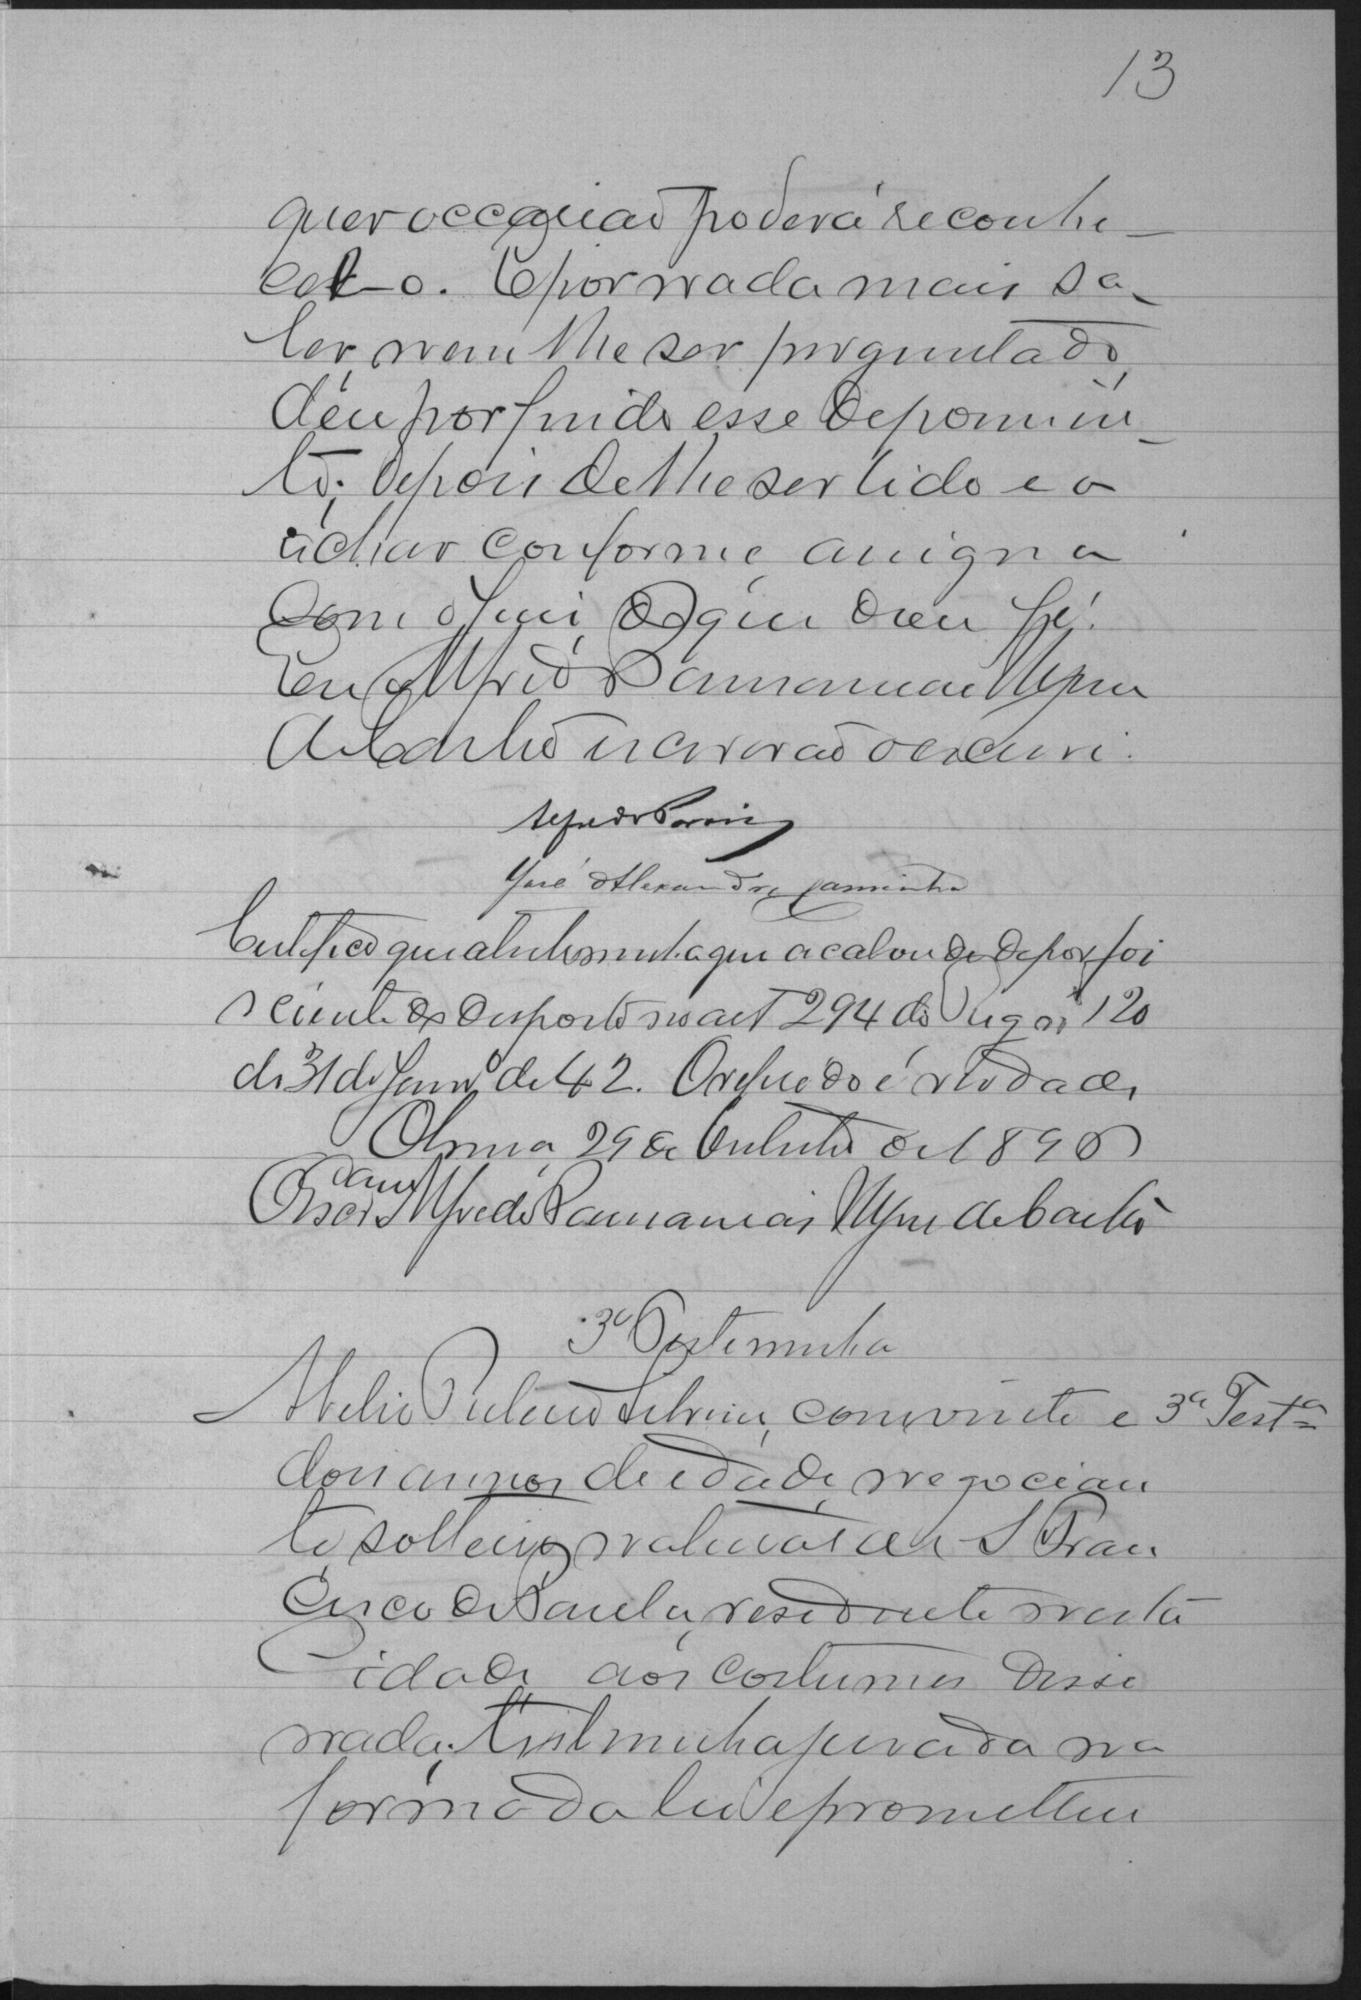 13
quer occasião poderá reconhe-
cel-o. E por nada mais sa-
ber, nem lhe ser perguntado,
deu por findo esse depoimen-
to; depois de lhe ser lido e o
achar conforme, assigna
com o Juiz, do que dou fé.
Eu Alfredo
de Castro escrivão o escrevi.
José Alexandre Caminha
Certifico que a testemunha que acabou de depor foi
sciente do disposto no art 294 do Reg nº 120
de 31 de Janrº de 42. O referido é verdade,
29 de Outubro de 189
Alfredo de Castro
3ª Testemunha
Silveira, com vinte e 3ª Testª
dois annos de edade, negocian
te solteiro, natural de S Fran
cisco de Paula, residente nesta
cidade, aos costumes disse
nada, testemunha jurada na
forma da lei e prometteu